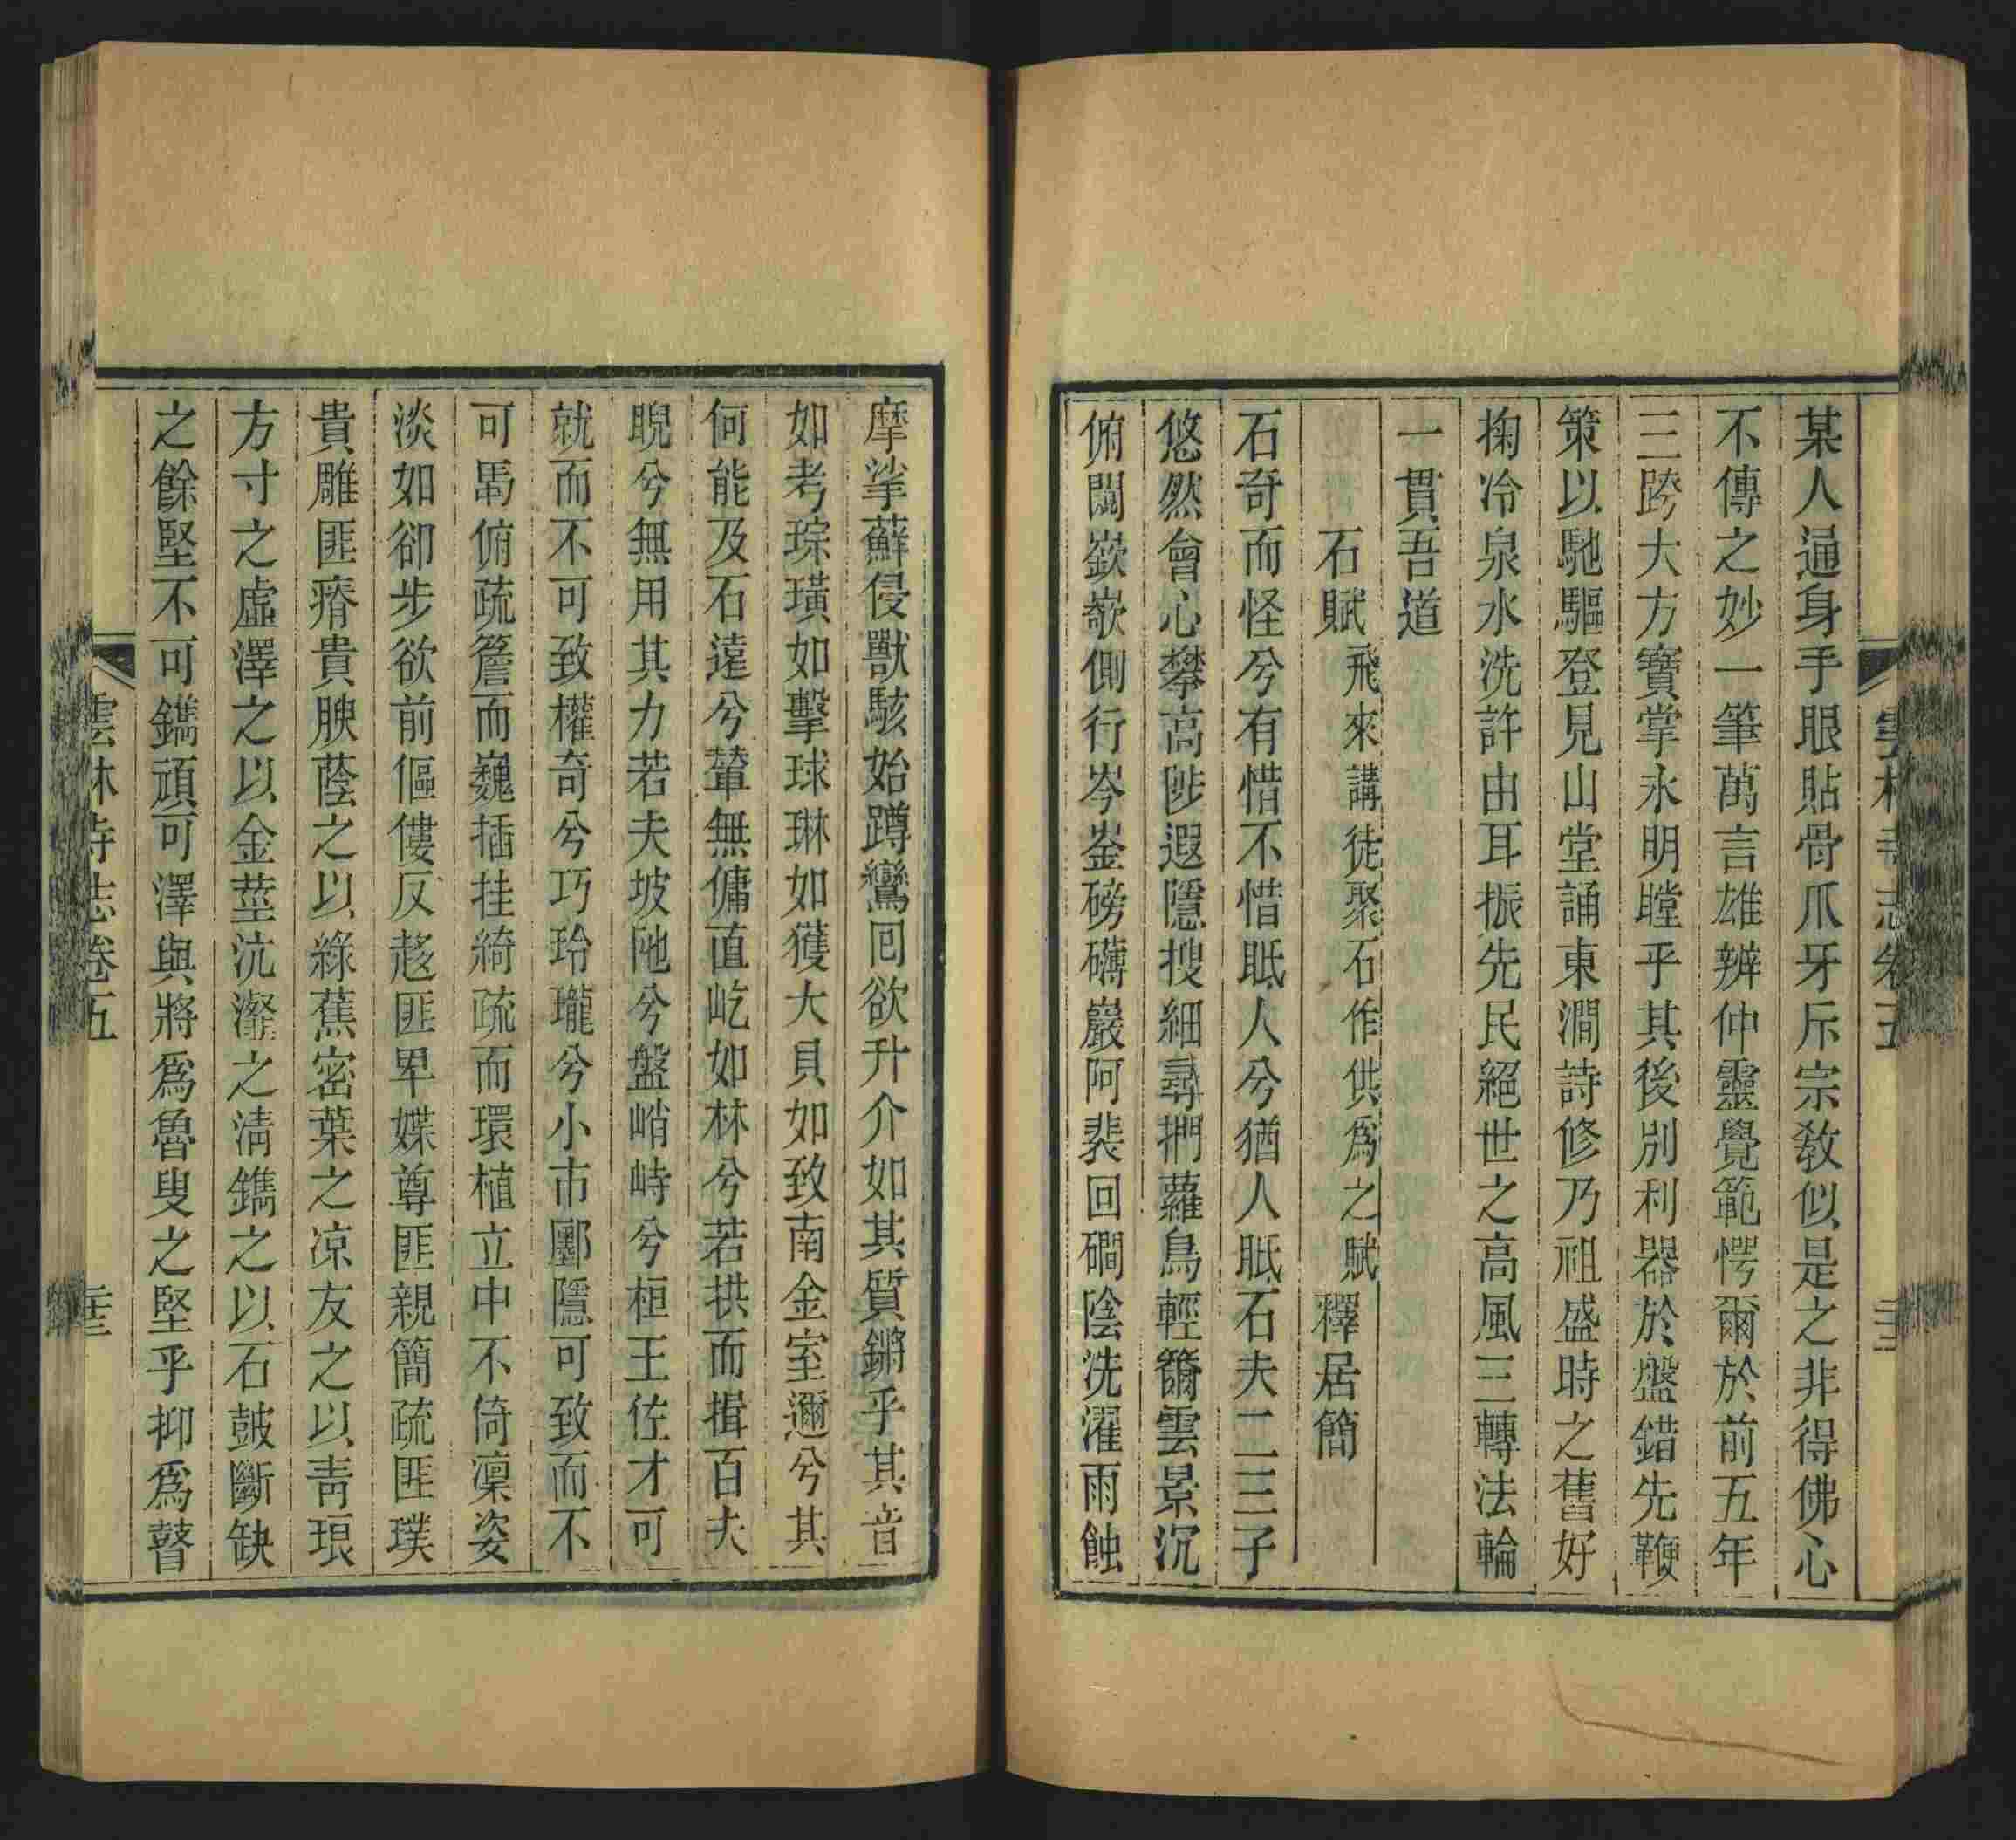 某人通身手眼貼骨爪牙斥宗教似是之非得佛心
不傳之妙一筆萬言雄辨仲靈覺範愕爾於前五年
三跨大方寶掌永明瞠乎其後別利器於盤錯先鞭
策以馳驅登見山堂誦東澗詩修乃祖盛時之舊好
掬冷泉水洗許由耳振先民絕世之高風三轉法輪
一貫吾道
石賦 飛來講徒聚石作供爲之賦 釋居簡
石奇而怪兮有惜不惜眡人兮猶人眡石夫二三子
悠然會心攀高陟遐隱搜細尋捫蘿鳥輕籋雲景沉
俯闖嶔嵚側行岑崟磅礴巖阿裴回磵陰洗濯雨蝕
摩挲蘚侵獸駭始蹲鸞回欲升介如其質鏘乎其音
如考琮璜如擊球琳如獲大貝如致南金室邇兮其
何能及石遠兮輦無傭直屹如林兮若拱而揖百夫
睨兮無用其力若夫坡陁兮盤峭峙兮桓王佐才可
就而不可致權奇兮巧玲瓏兮小市郾隱可致而不
可曷俯疏簷而巍插挂綺疏而環植立中不倚凜姿
淡如卻步欲前傴僂反趍匪卑媟尊匪親簡疏匪璞
貴雕匪瘠貴腴蔭之以綠蕉密葉之凉友之以青琅
方寸之虛澤之以金莖沆瀣之淸鐫之以石鼓斷缺
之餘堅不可鐫頑可澤與將爲魯叟之堅乎抑爲瞽
雲林寺志卷五